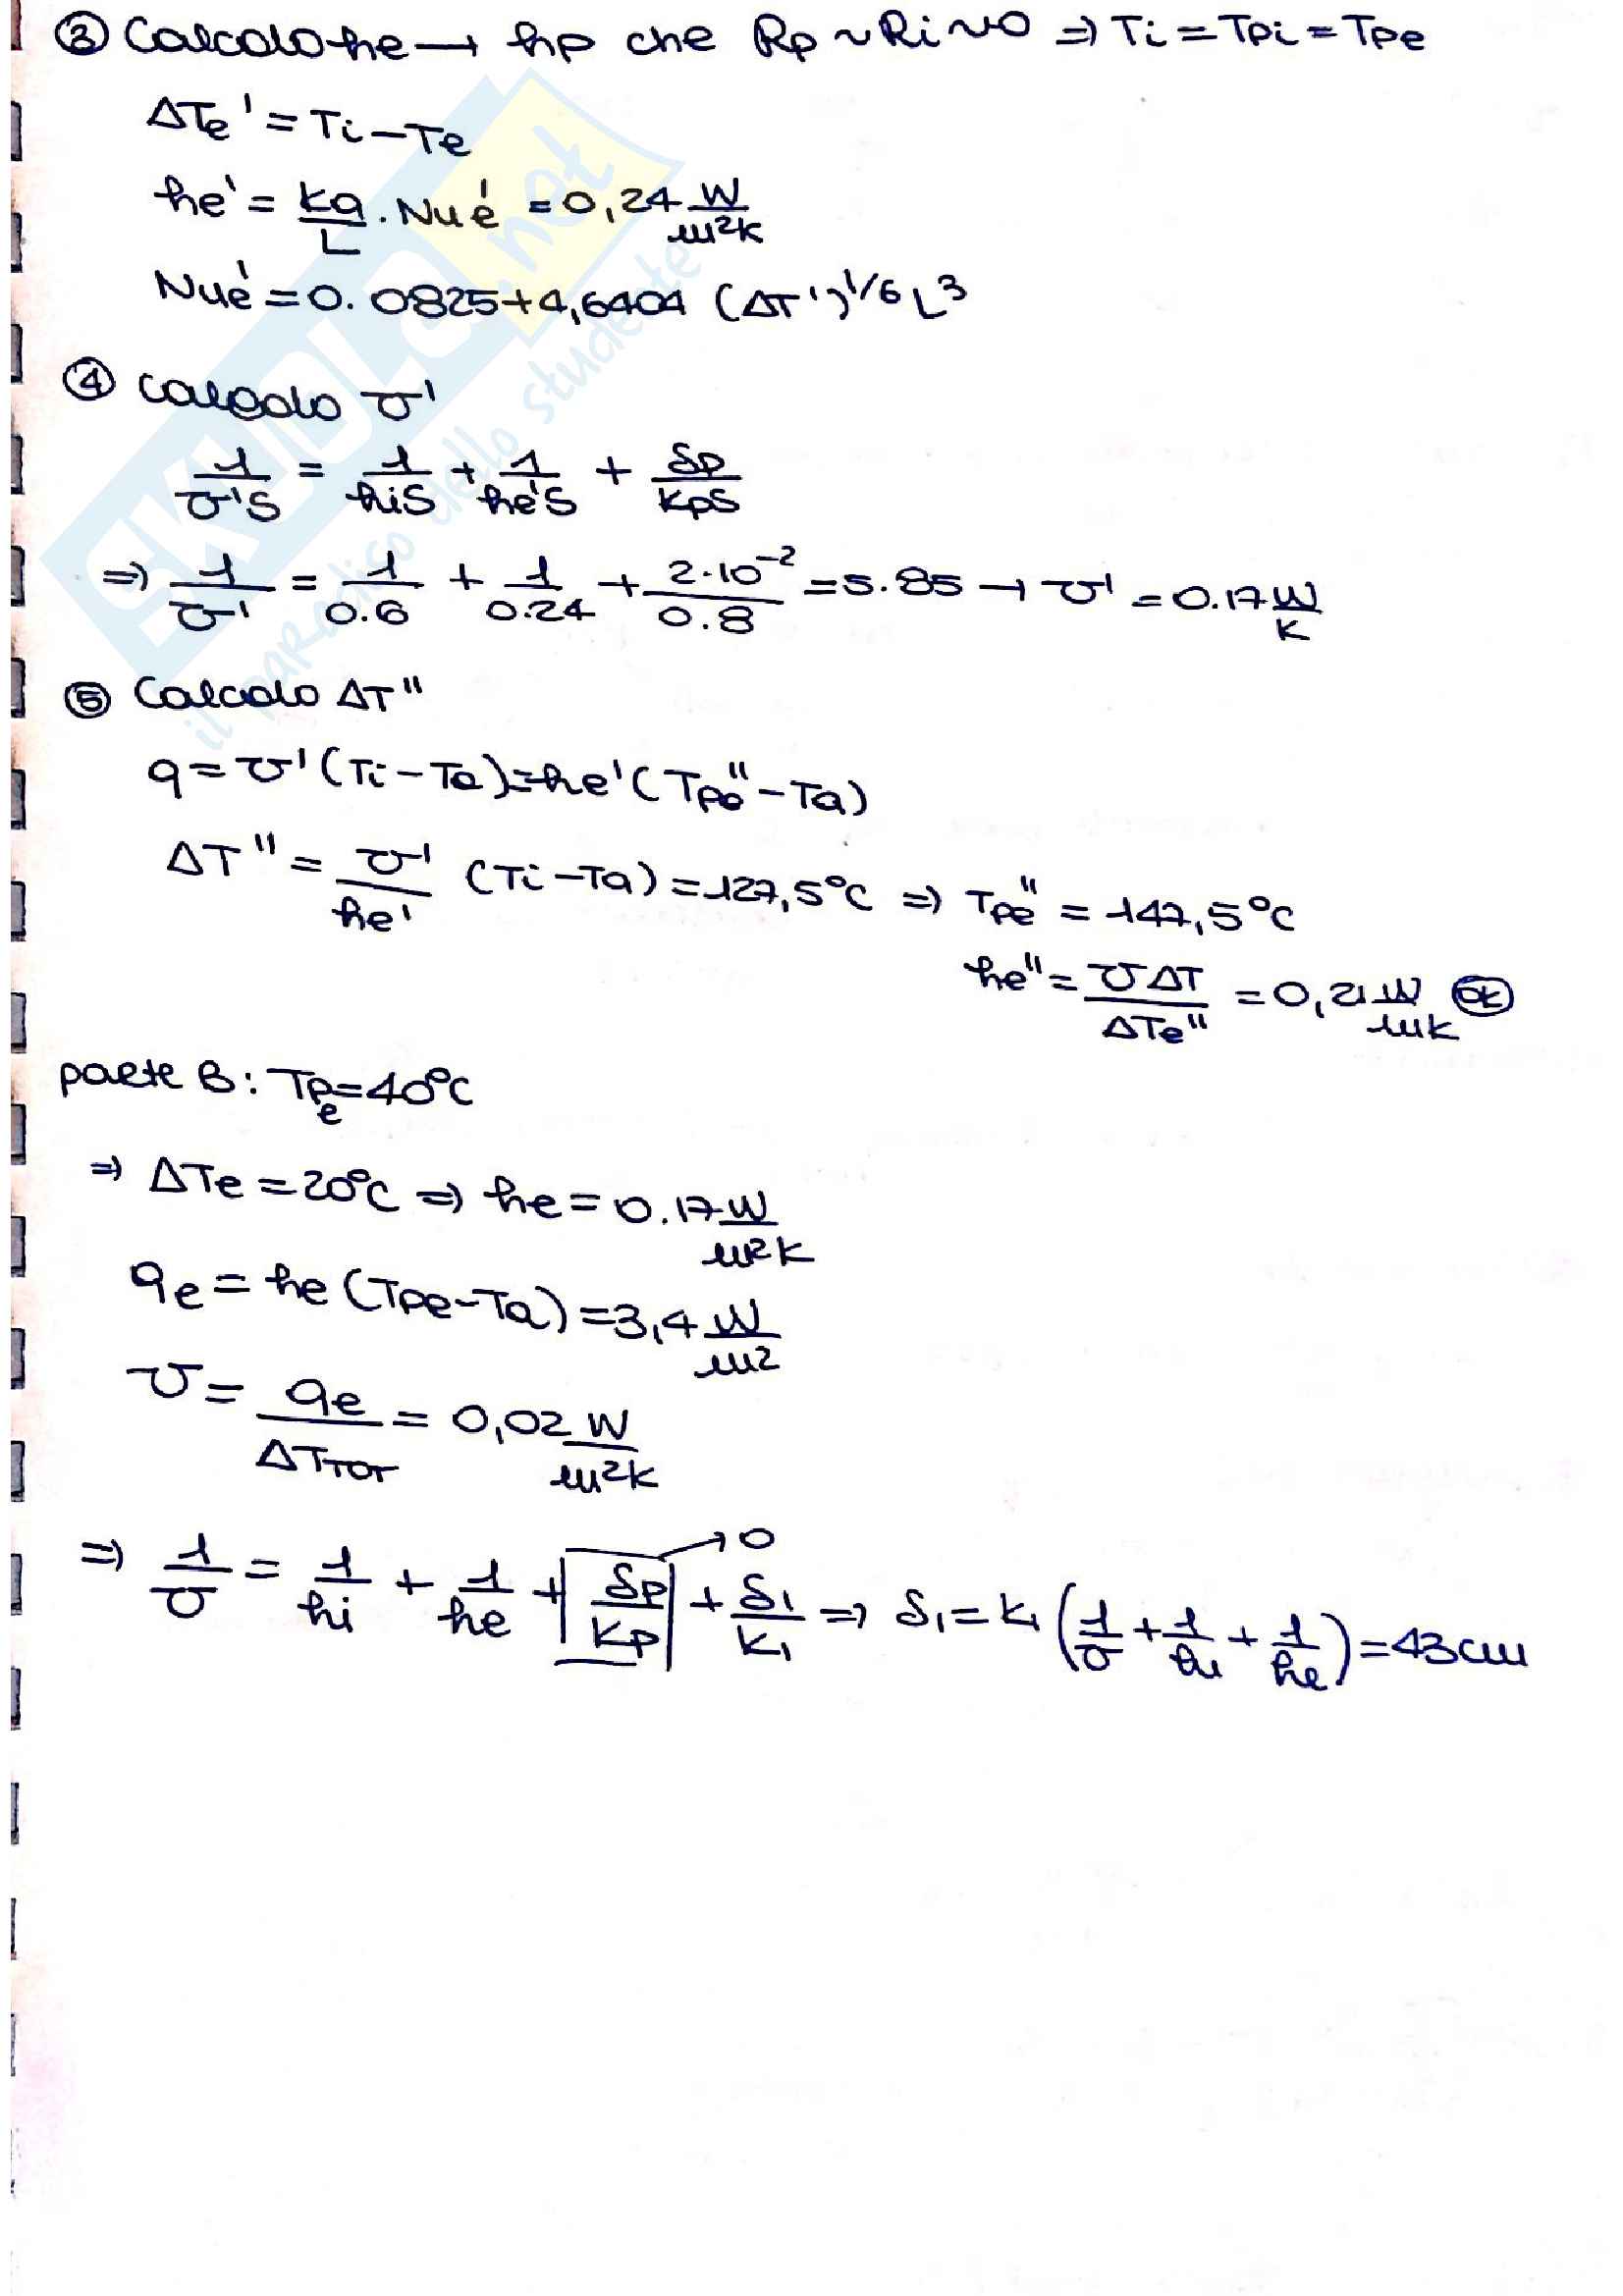 ③ Calcolo he → hp che Rp ~ Ri ~ 0 ⇒ Ti = Tpi = Tpe
ΔTe' = Ti − Te
he' = ka/L · Nué' = 0,24 W/m²K
Nué' = 0.0825 + 4,6404 (ΔT')^1/6 L^3
④ Calcolo U'
1/U'S = 1/hiS + 1/he'S + δp/kpS
⇒ 1/U' = 1/0.6 + 1/0.24 + 2·10^-2/0.8 = 5.85 → U' = 0.17 W/K
⑤ Calcolo ΔT"
q = U'(Ti − Ta) = he'(Tpe" − Ta)
ΔT" = U'/he' (Ti − Ta) = 127,5°C ⇒ Tpe" = 147,5°C
he" = UΔT/ΔTe" = 0,21 W/mK OK
parte B: Tpe = 40°C
⇒ ΔTe = 20°C ⇒ he = 0.17 W/m²K
qe = he (Tpe − Ta) = 3,4 W/m²
U = qe/ΔTTOT = 0,02 W/m²K
⇒ 1/U = 1/hi + 1/he + |δp/kp| → 0 + δ1/k1 ⇒ δ1 = k1 (1/U + 1/hi + 1/he) = 43 cm
SKUOLA.net
il paradiso dello studente